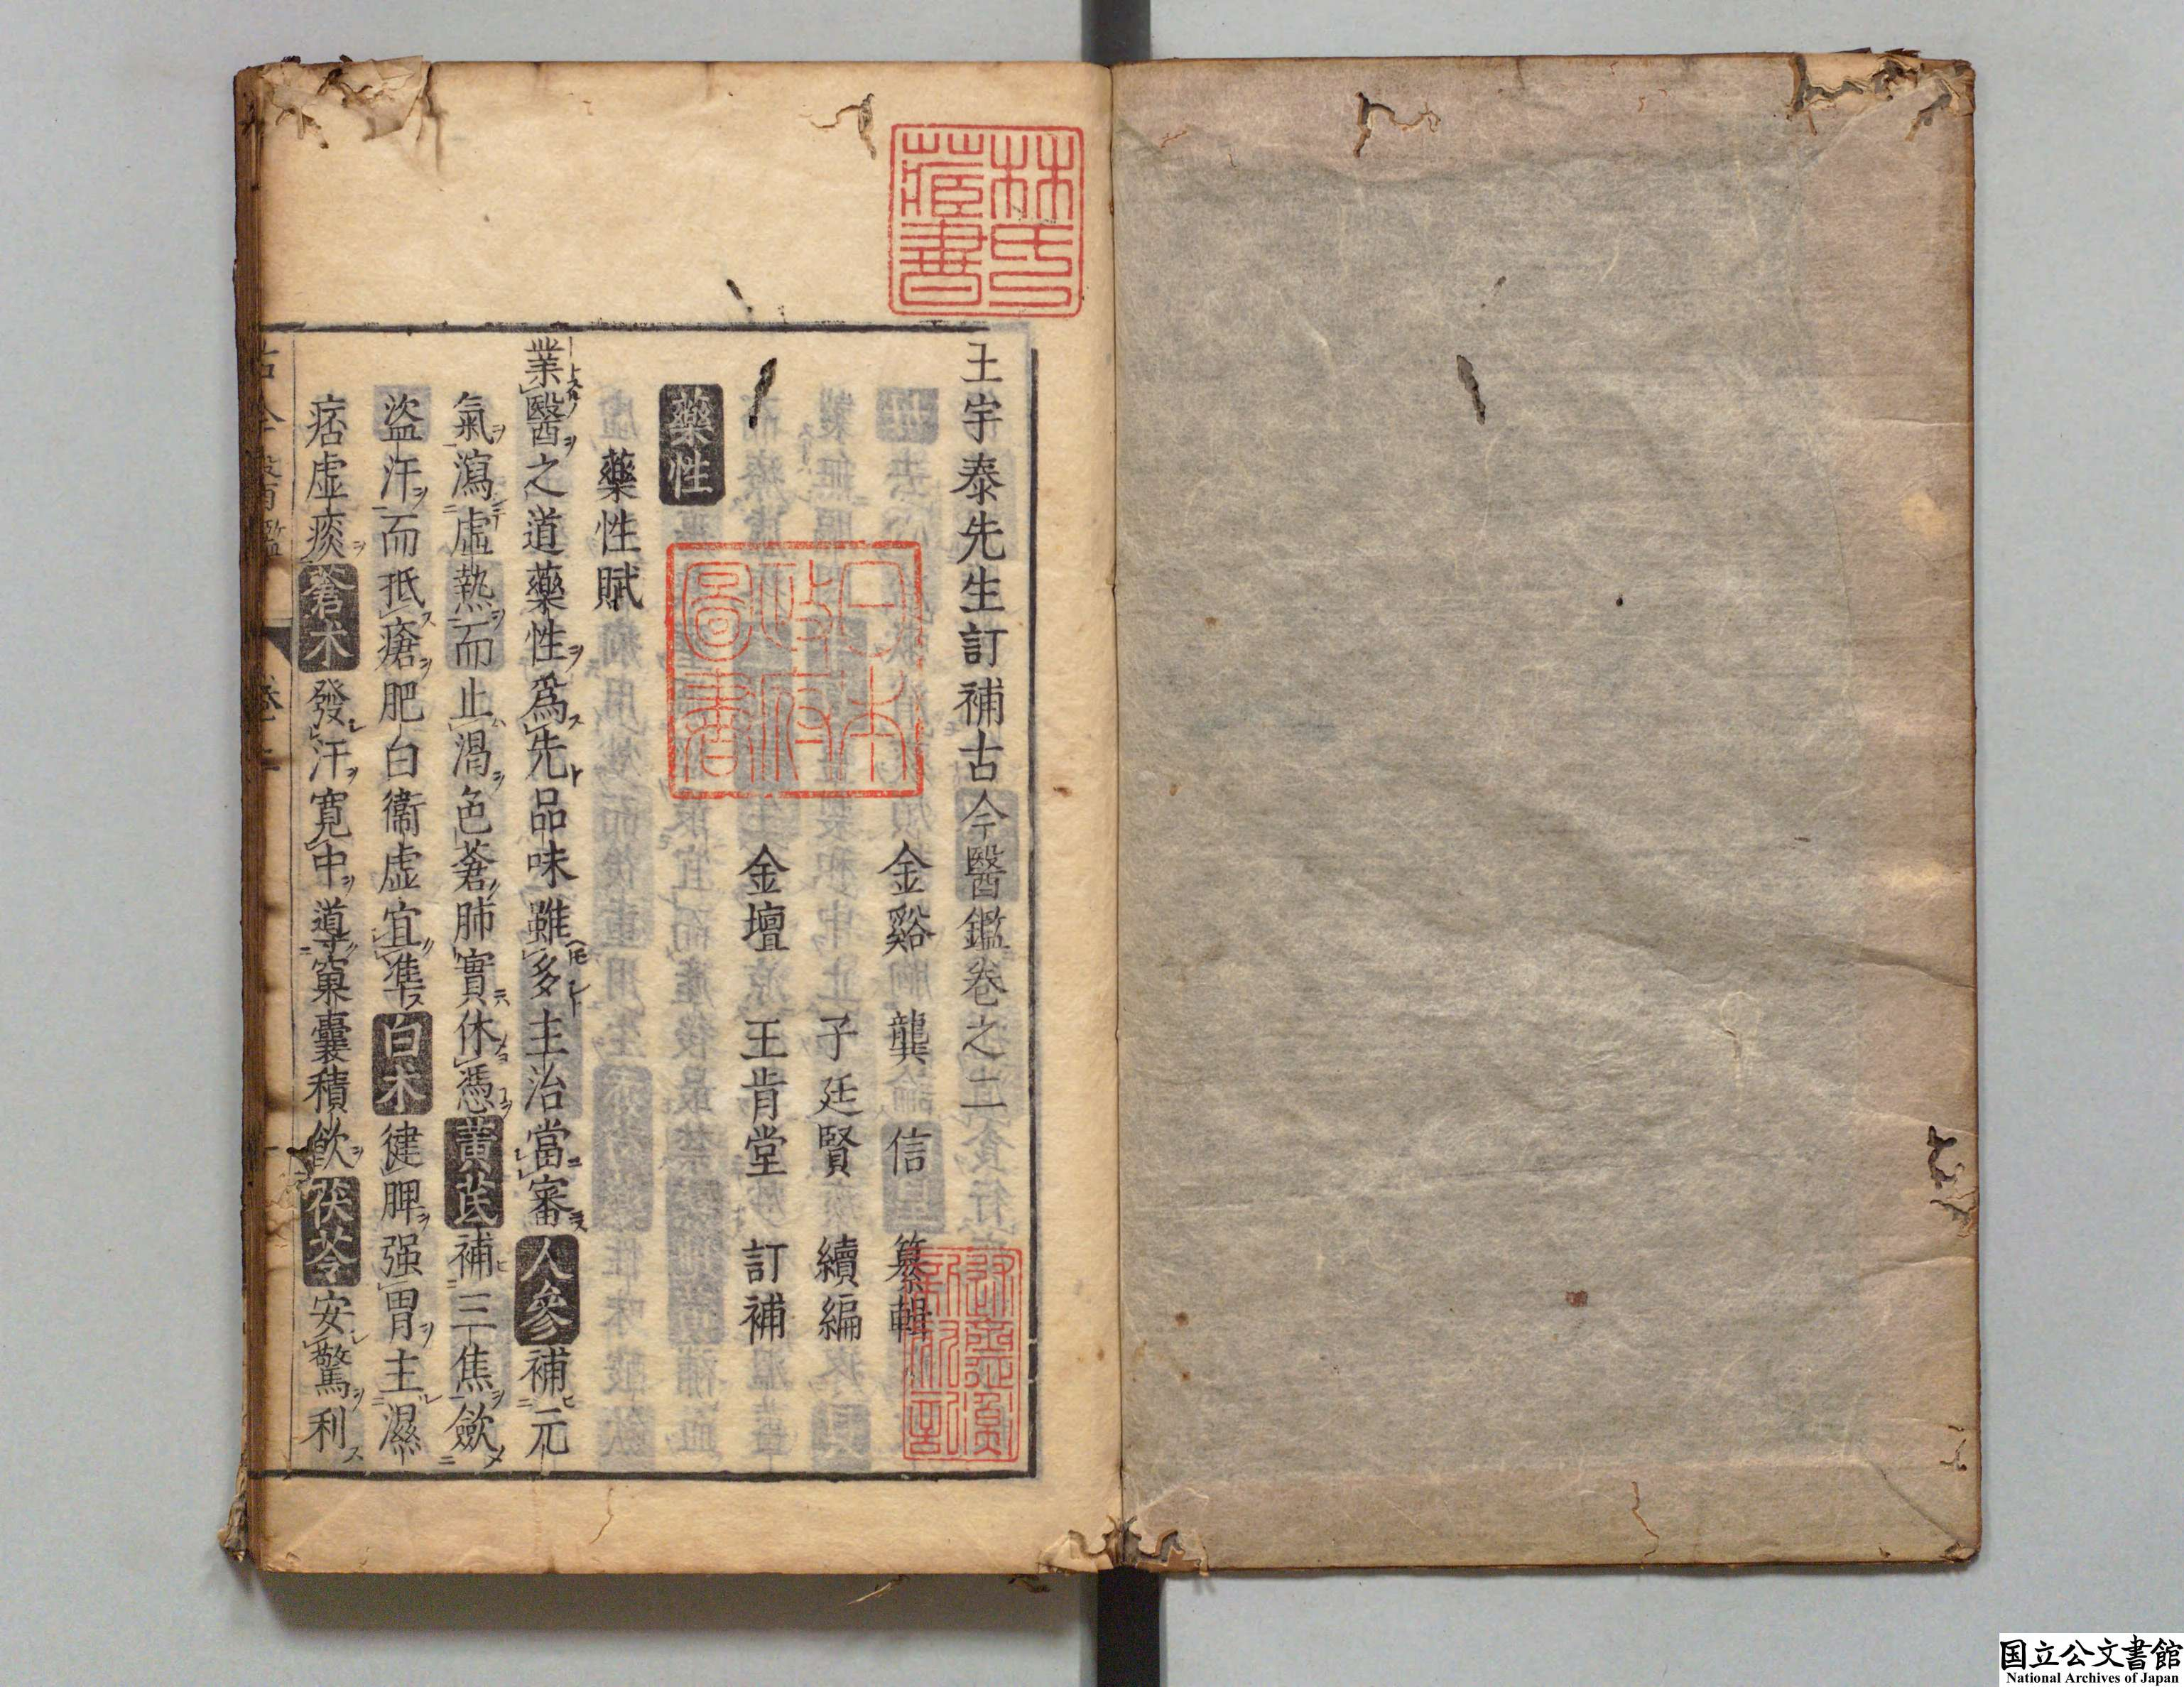 王宇泰先生訂補古今醫鑑卷之二
金谿 龔 信 纂輯
子廷賢 續編
金壇 王肯堂 訂補
藥性
藥性賦
業醫之道藥性爲先品味雖多主治當審人參補元
氣瀉虛熱而止渴色蒼肺實休憑黃芪補三焦歛
盜汗而抵瘡肥白衞虛宜準白朮健脾强胃主濕
痞虛痰蒼朮發汗寬中導窠囊積飮茯苓安驚利
林氏藏書
日本政府圖書
国立公文書館
National Archives of Japan